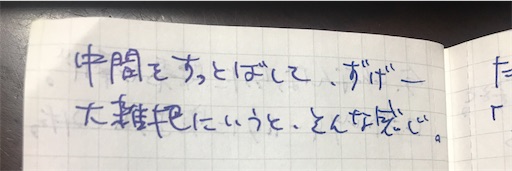 中間をすっとばして、ずげー
大雑把にいうと、そんな感じ。
た
r